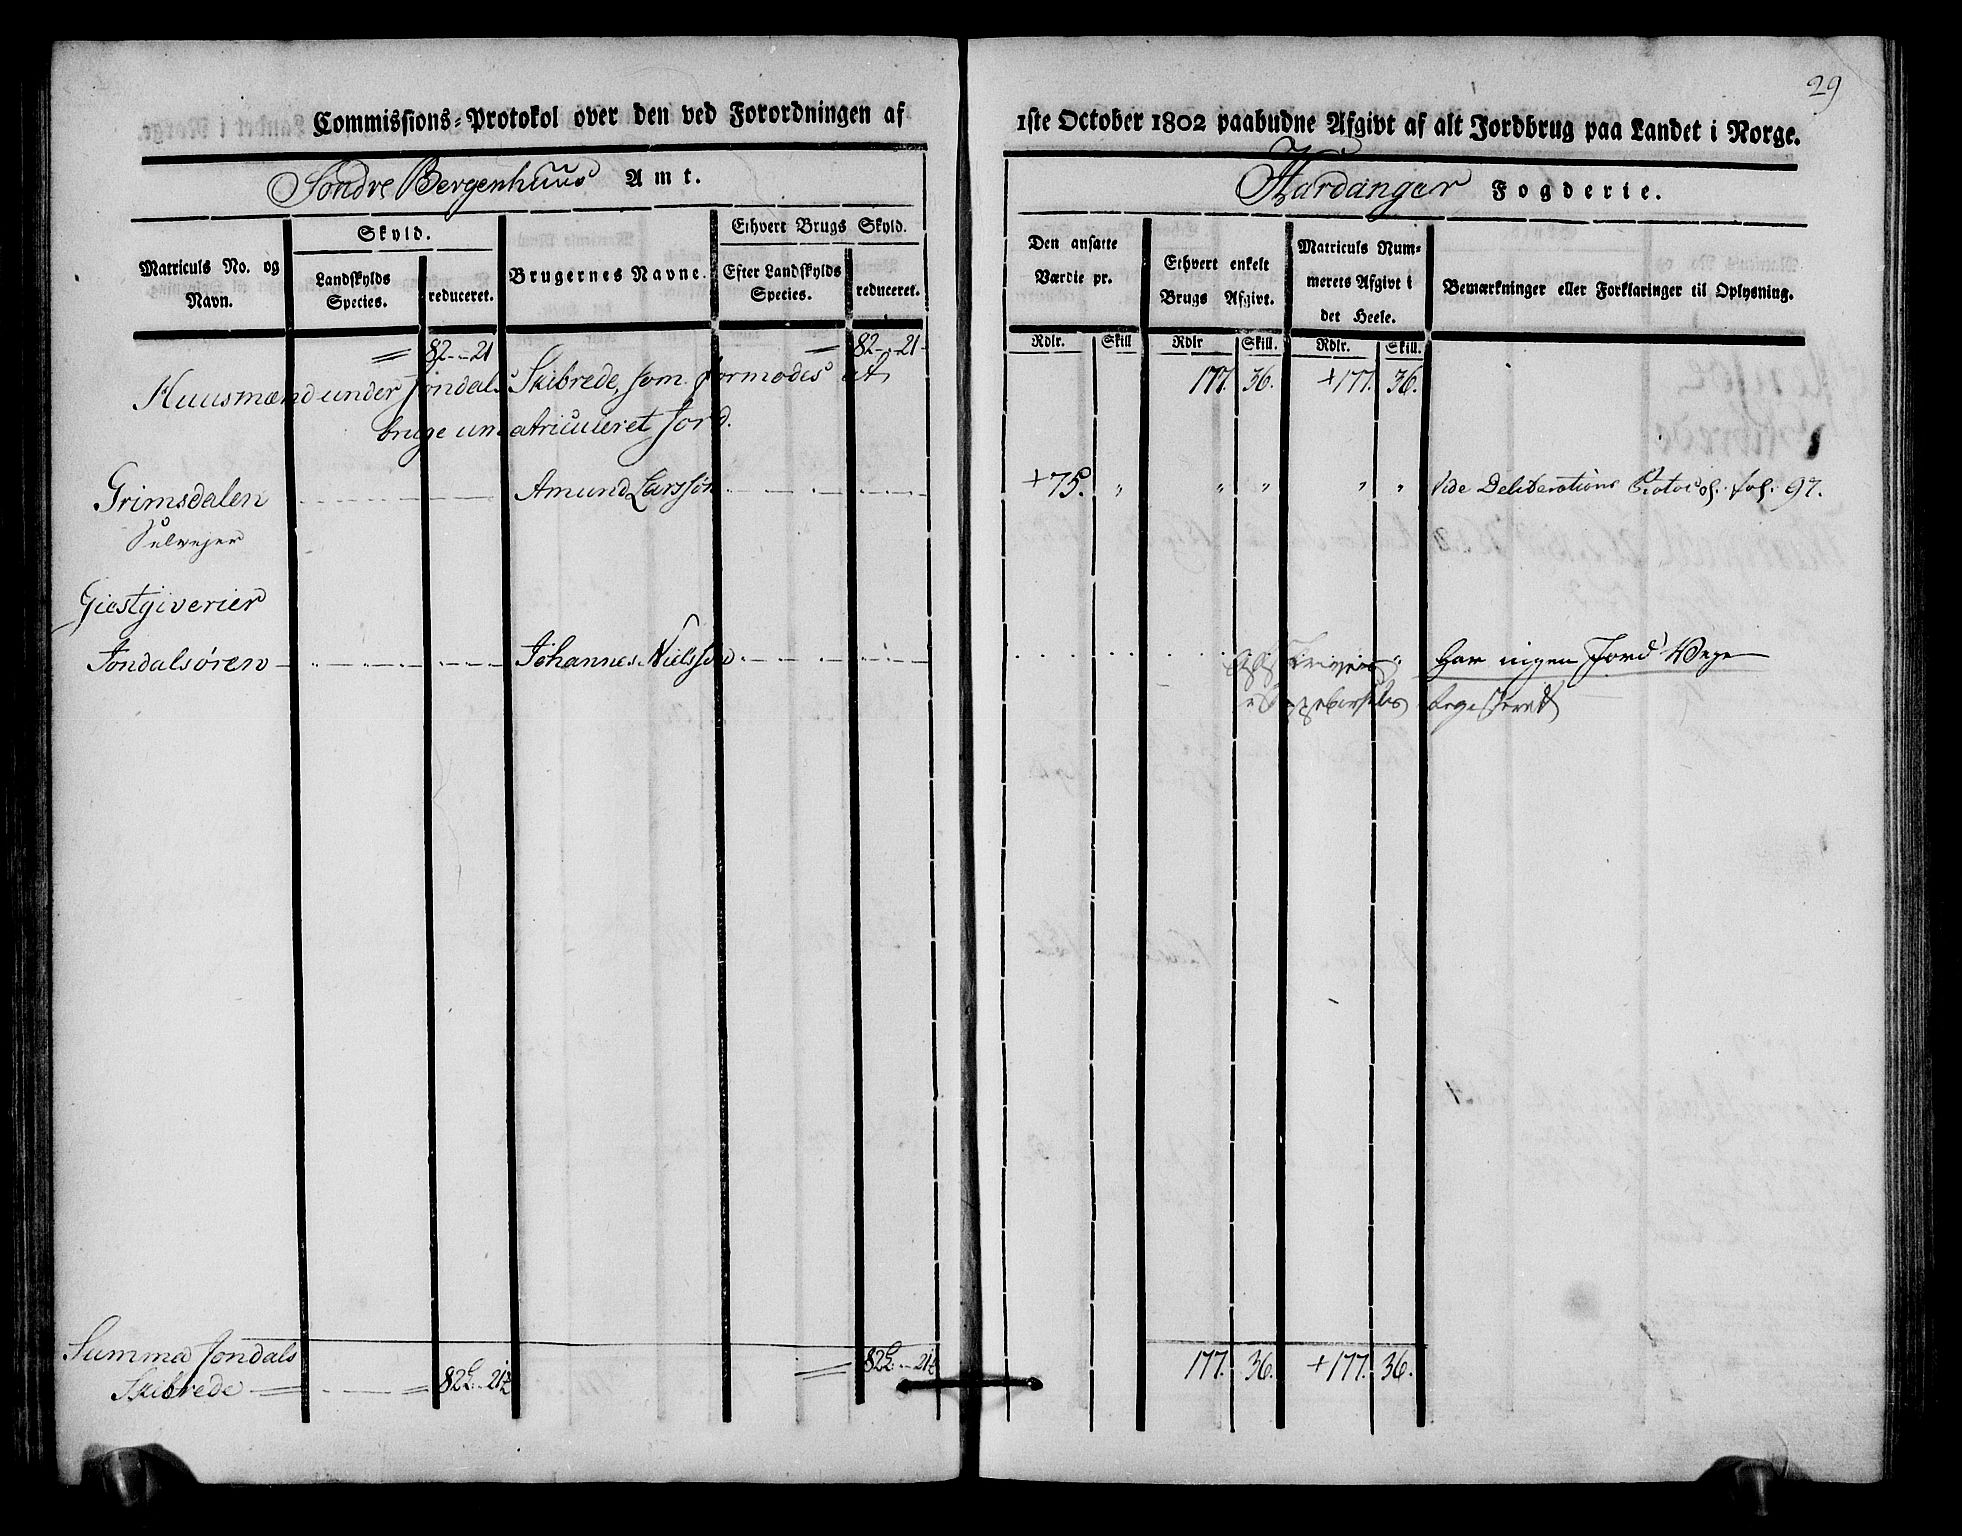 29
Commissions-Protokol over den ved Forordningen af 1ste October 1802 paabudne Afgivt af alt Jordbrug paa Landet i Norge.
Söndre Bergenhuus Amt. Hardanger Fogderie.
Matriculs No. og Navn.
Skyld.
Landskylds Species.
reduceret.
Brugernes Navne.
Ethvert Brugs Skyld.
Efter Landskylds Species.
reduceret.
Den ansatte Værdie pr.
Ethvert enkelt Brugs Afgivt.
Matriculs Nummerets Afgivt i det Heele.
Bemærkninger eller Forklaringer til Oplysning.
Rdlr. Skill Rdlr Skill. Rdlr. Skill.
82 - 21 82 - 21
Huusmænd under Jondals Skibrede, som formodes at 177. 36. +177. 36.
bruge umatriculeret Jord.
Grimsdalen Amund Larssön +75. " " " " " Vide Deliberations Protocol. fol. 97.
Selvejer
Giestgiverier
Jondalsøren Johannes Nielssön har ingen Jord
Summa Jondals
Skibrede 82 21½ 82 21½ 177. 36. +177. 36.